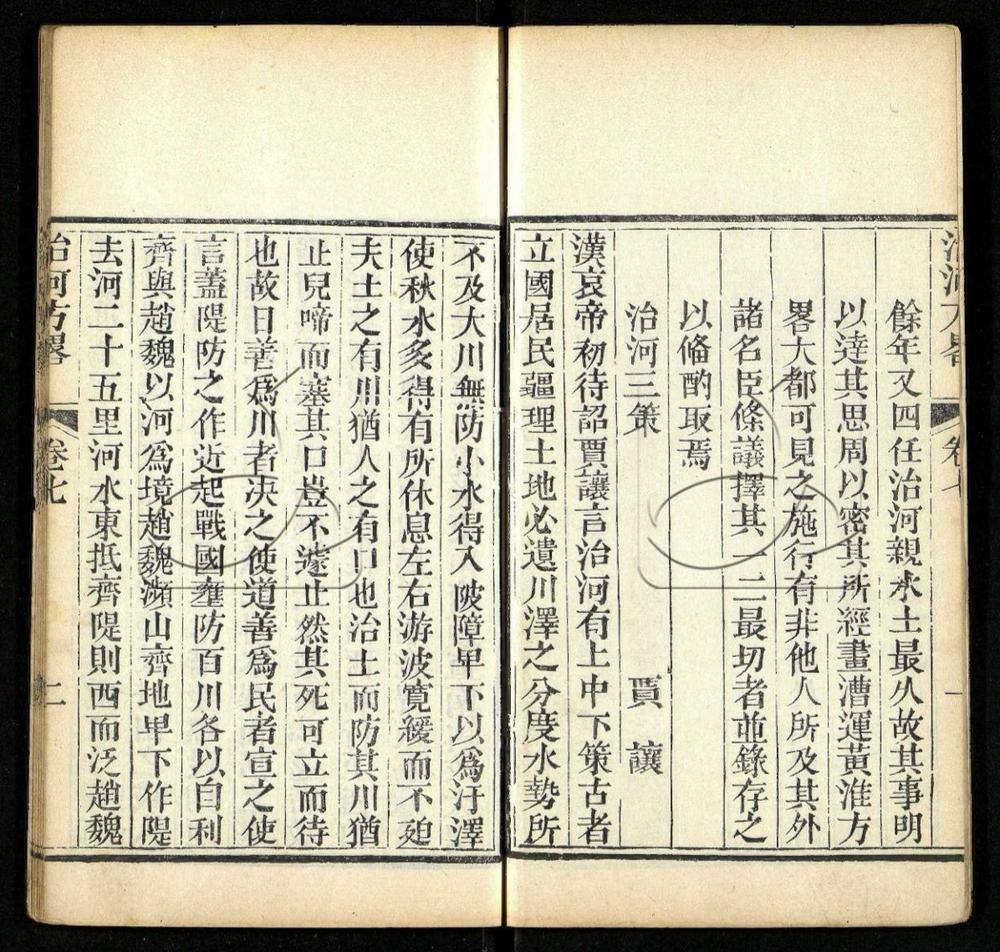 治河方畧 卷七 一
餘年又四任治河親水土最久故其事明
以達其思周以密其所經畫漕運黃淮方
畧大都可見之施行有非他人所及其外
諸名臣條議擇其一二最切者並錄存之
以備酌取焉
治河三策 賈讓
漢哀帝初待詔賈讓言治河有上中下策古者
立國居民疆理土地必遺川澤之分度水勢所
不及大川無防小水得入陂障卑下以為汙澤
使秋水多得有所休息左右游波寬緩而不廹
夫土之有川猶人之有口也治土而防其川猶
止兒啼而塞其口豈不遽止然其死可立而待
也故曰善為川者决之使道善為民者宣之使
言蓋隄防之作近起戰國壅防百川各以自利
齊與趙魏以河為境趙魏瀕山齊地卑下作隄
去河二十五里河水東抵齊隄則西而泛趙魏
治河方畧 卷七 二